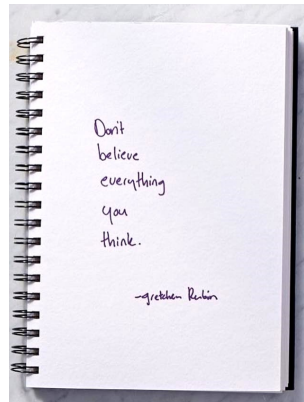 Don't
believe
everything
you
think.
-gretchen Rubin